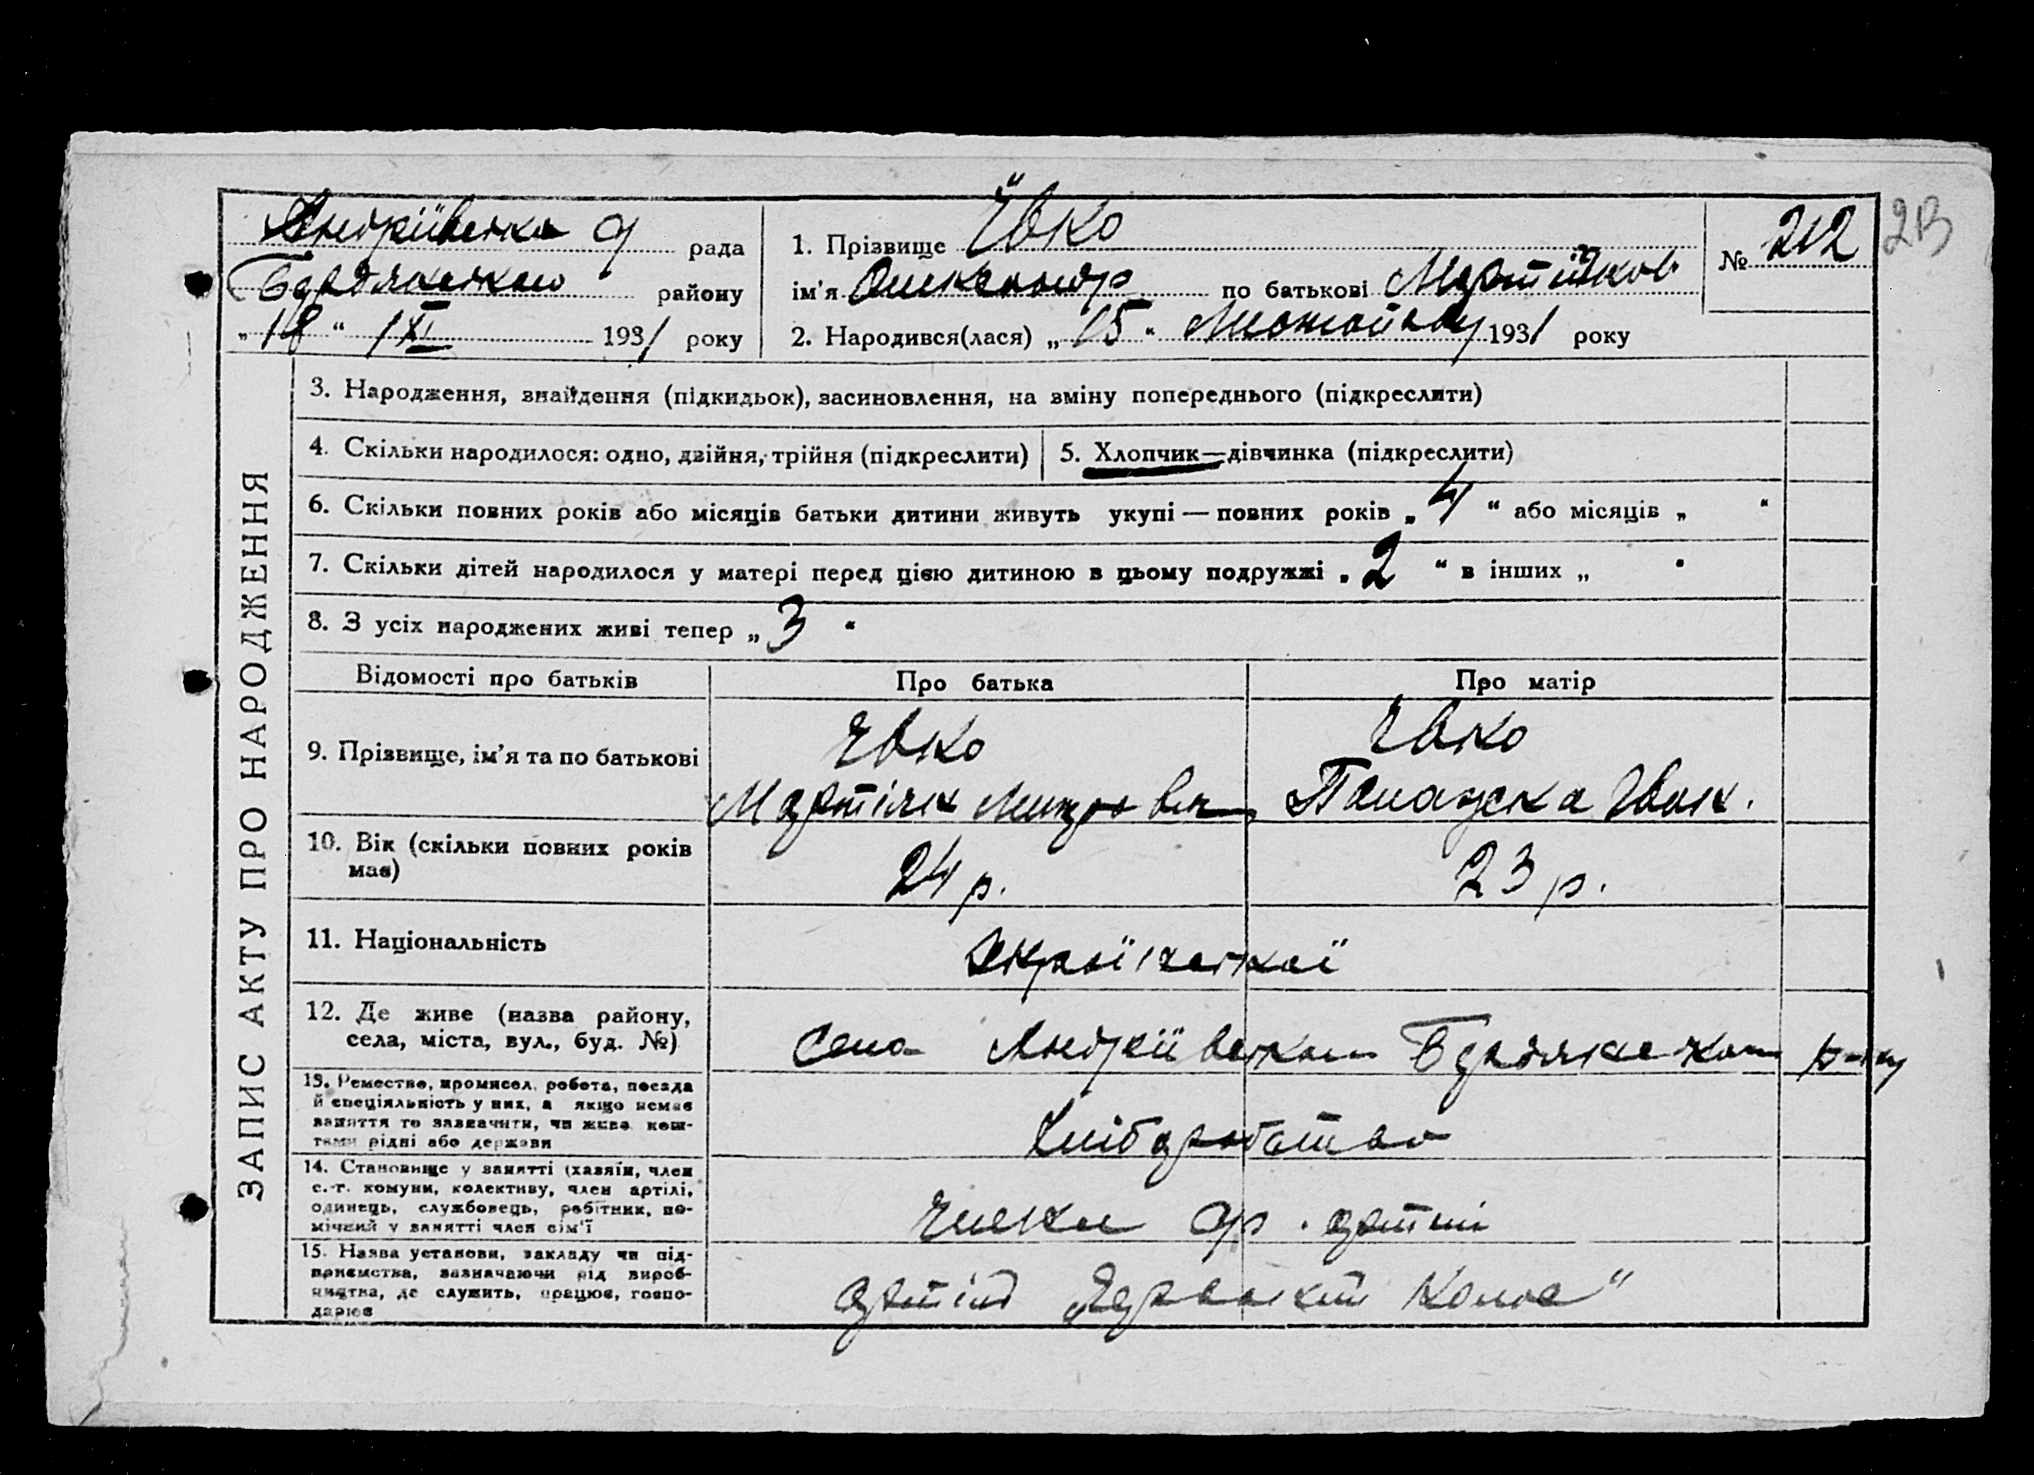 Андріївська рада
Бердянського району
„18“ IXI 1931 року
1. Прізвище Ївко
ім’я Олександр по батькові
2. Народився(лася) „15“ Листопаду 1931 року
№ 212
ЗАПИС АКТУ ПРО НАРОДЖЕННЯ
3. Народження, знайдення (підкидьок), засиновлення, на зміну попереднього (підкреслити)
4. Скільки народилося: одно, двійня, трійня (підкреслити)
5. Хлопчик—дівчинка (підкреслити)
6. Скільки повних років або місяців батьки дитини живуть укупі — повних років „4“ або місяців „ “
7. Скільки дітей народилося у матері перед цією дитиною в цьому подружжі „2“ в інших „ “
8. З усіх народжених живі тепер „3“
Відомості про батьків Про батька Про матір
9. Прізвище, ім’я та по батькові
Івко Івко
Палажка Іван.
10. Вік (скільки повних років
має)
24 р. 23 р.
11. Національність
Української
12. Де живе (назва району,
села, міста, вул., буд. №)
Село Андріївка Бердянського р-ну
13. Ремество, промисел, робота, посада
й спеціяльність у них, а якщо немає
заняття то зазначити, чи живе кош-
тами рідні або держави
Хліборобство
14. Становище у занятті (хазяїн, член
с.-г. комуни, колективу, член артілі,
одинець, службовець, робітник, по-
мічний у занятті член сім’ї
члени ар. артілі
15. Назва установи, закладу чи під-
приємства, зазначаючи рід вироб-
ництва, де служить, працює, госпо-
дарює
артіль „Червоний Колос“